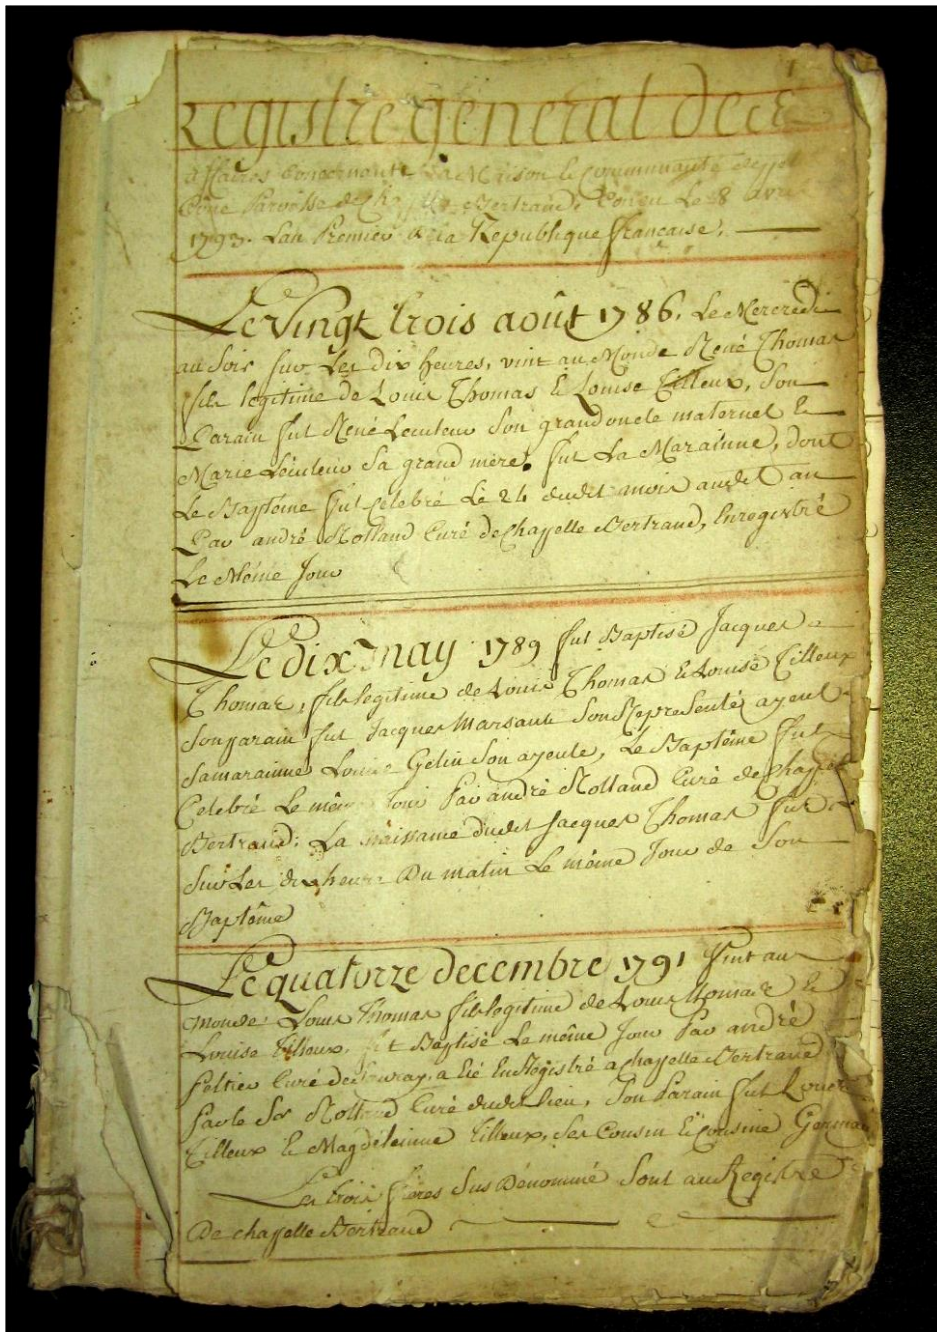 1
Registre general de
affaires Concernante La Maison & Communauté
Paroisse de Bertrand, Le 8
1793. Lan Premier de la Republique francaise.
Le Vingt trois août 1786. Le Mercredi
au Soir sur Les dix heures, vint au Monde René Thomas
fils legitime de Louis Thomas & Louise Tilleux, Son
Parain fut René Lecuteur Son grand oncle maternel &
Marie Lecuteur Sa grand mere. fut La Marainne, dont
Le Baptême fut Celebré Le 24 dudit mois audit an
Par andré Rolland Curé de Chapelle Bertrand, Enregistré
Le Même Jour
Le dix May 1789 fut Baptisé Jacques
Thomas, fils legitime de Louis Thomas & Louise Tilleux
Son parain fut Jacques Marsault Son Representé ayeul
Sa marainne Louise Gelin Son ayeule, Le Baptême fut
Celebré Le même Jour Par andré Rolland Curé de Chapelle
Bertrand: La naissance dudit Jacques Thomas fut
Sur Les dix heures Du matin Le même Jour de Son
Baptême
Le quatorze decembre 1791 Vint au
monde Louis Thomas fils legitime de Louis Thomas &
Louise Tilleux, fut Baptisé Le même Jour Par andré
Peltier Curé de, a Eté En Registré a Chapelle Bertrand
par le Sr Rolland Curé dudit lieu, Son Parain fut
Tilleux & Magdeleinne Tilleux, Ses Cousin & Cousine Germain
Les trois freres Sus Dénommé Sont au Registre
De chapelle Bertrand